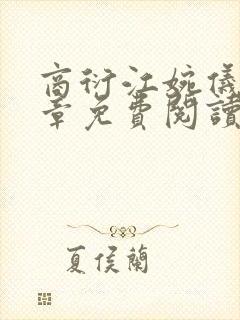 商衍江婉儀
章免費閱讀
夏侯蘭